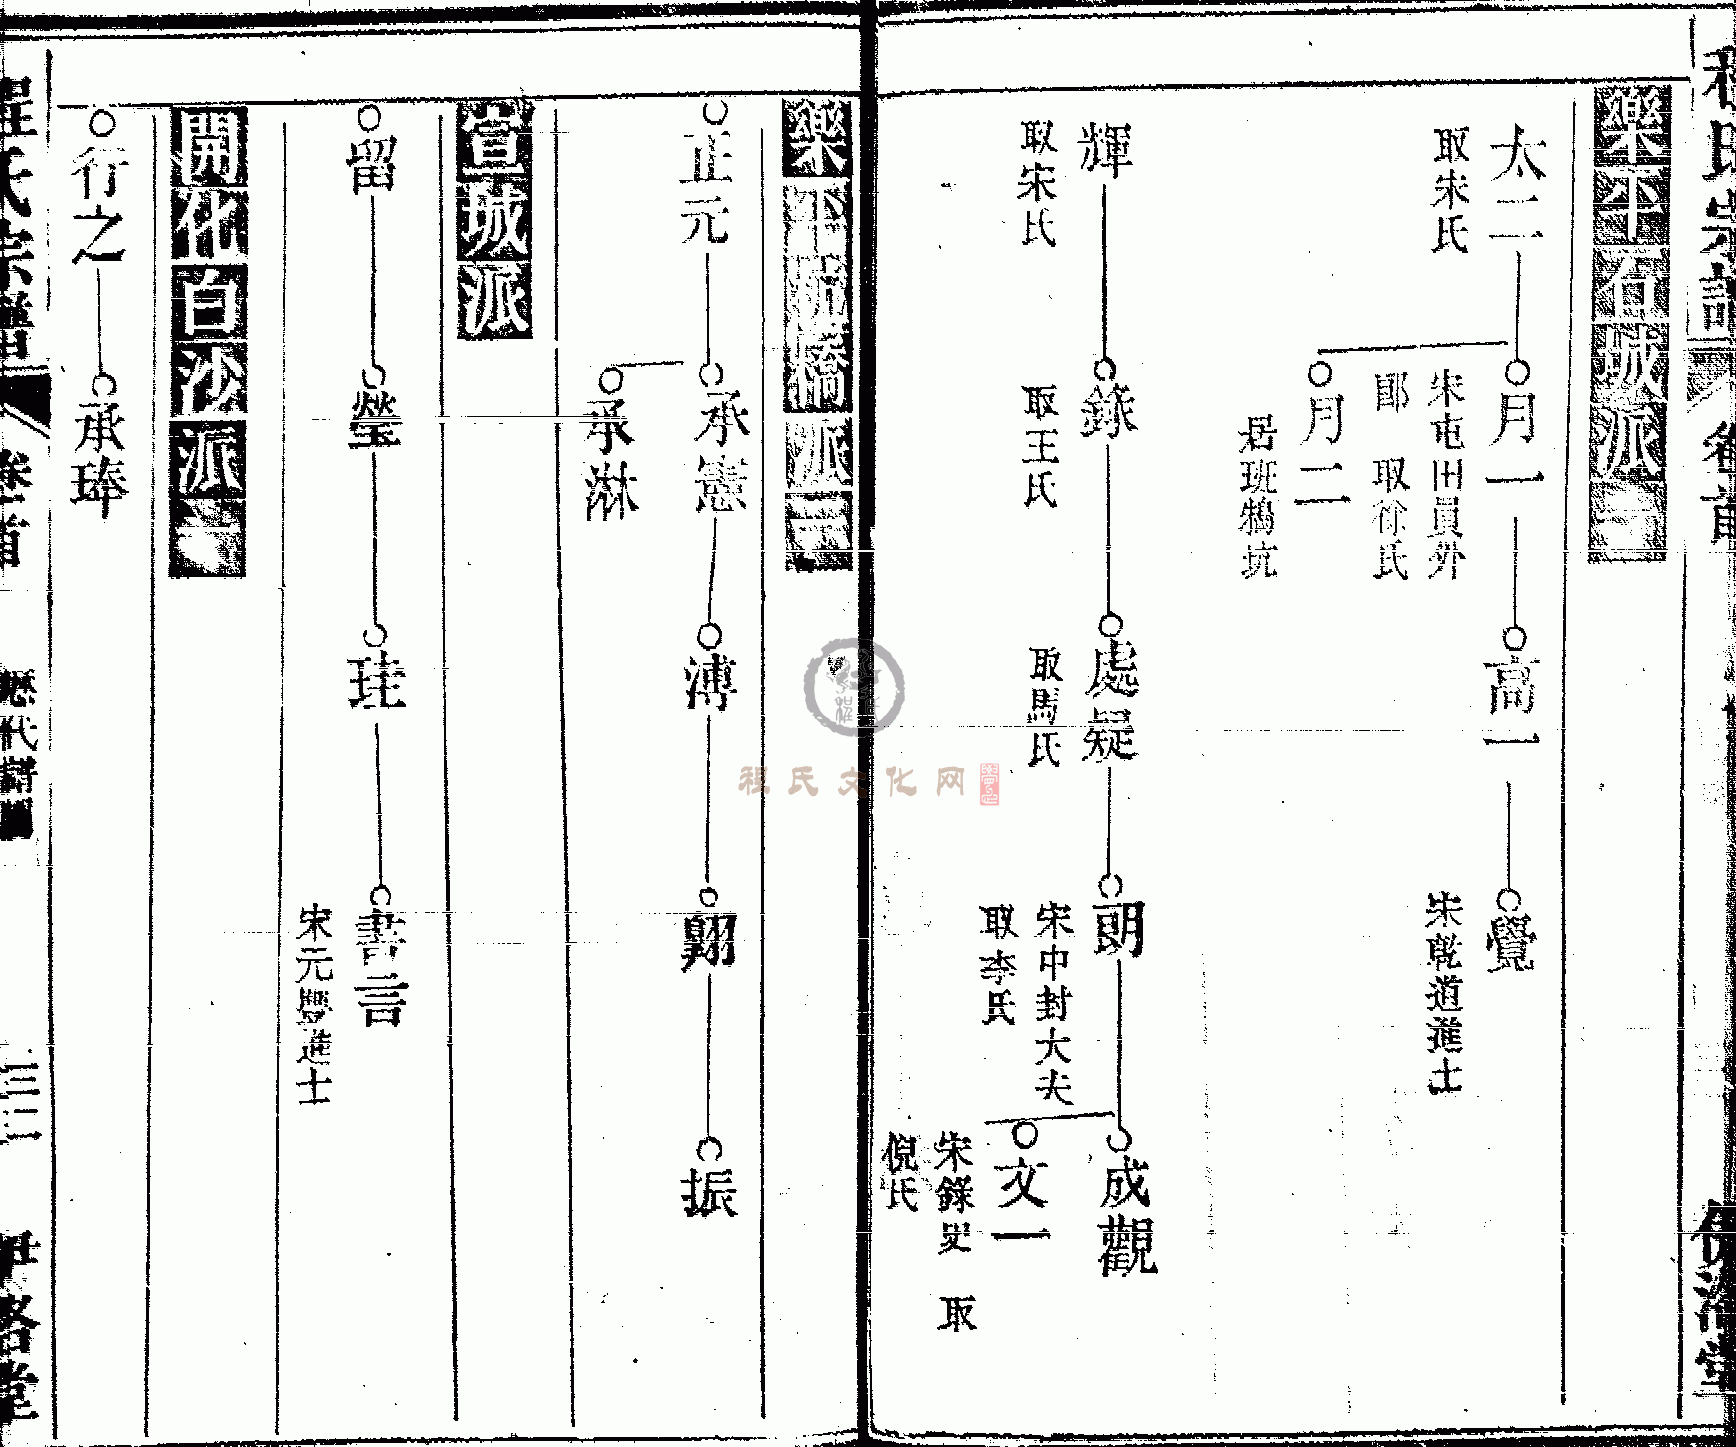 樂平石城派
太二
取朱氏
月一
宋屯田員外
郎 取徐氏
月二
居班鵁坑
高一
覺
宋乾道進士
輝
取宋氏
錄
取王氏
處疑
取馬氏
朗
宋中封大夫
取李氏
成觀
文一
宋錄叟 取
倪氏
樂平 橋派
正元
承憲
承淋
溥
翔
振
宣城派
留
瑩
珪
書言
宋元豐進士
開化白沙派
行之
承琫
程氏宗譜
卷首
歷代譜圖
伊洛堂
程氏文化网